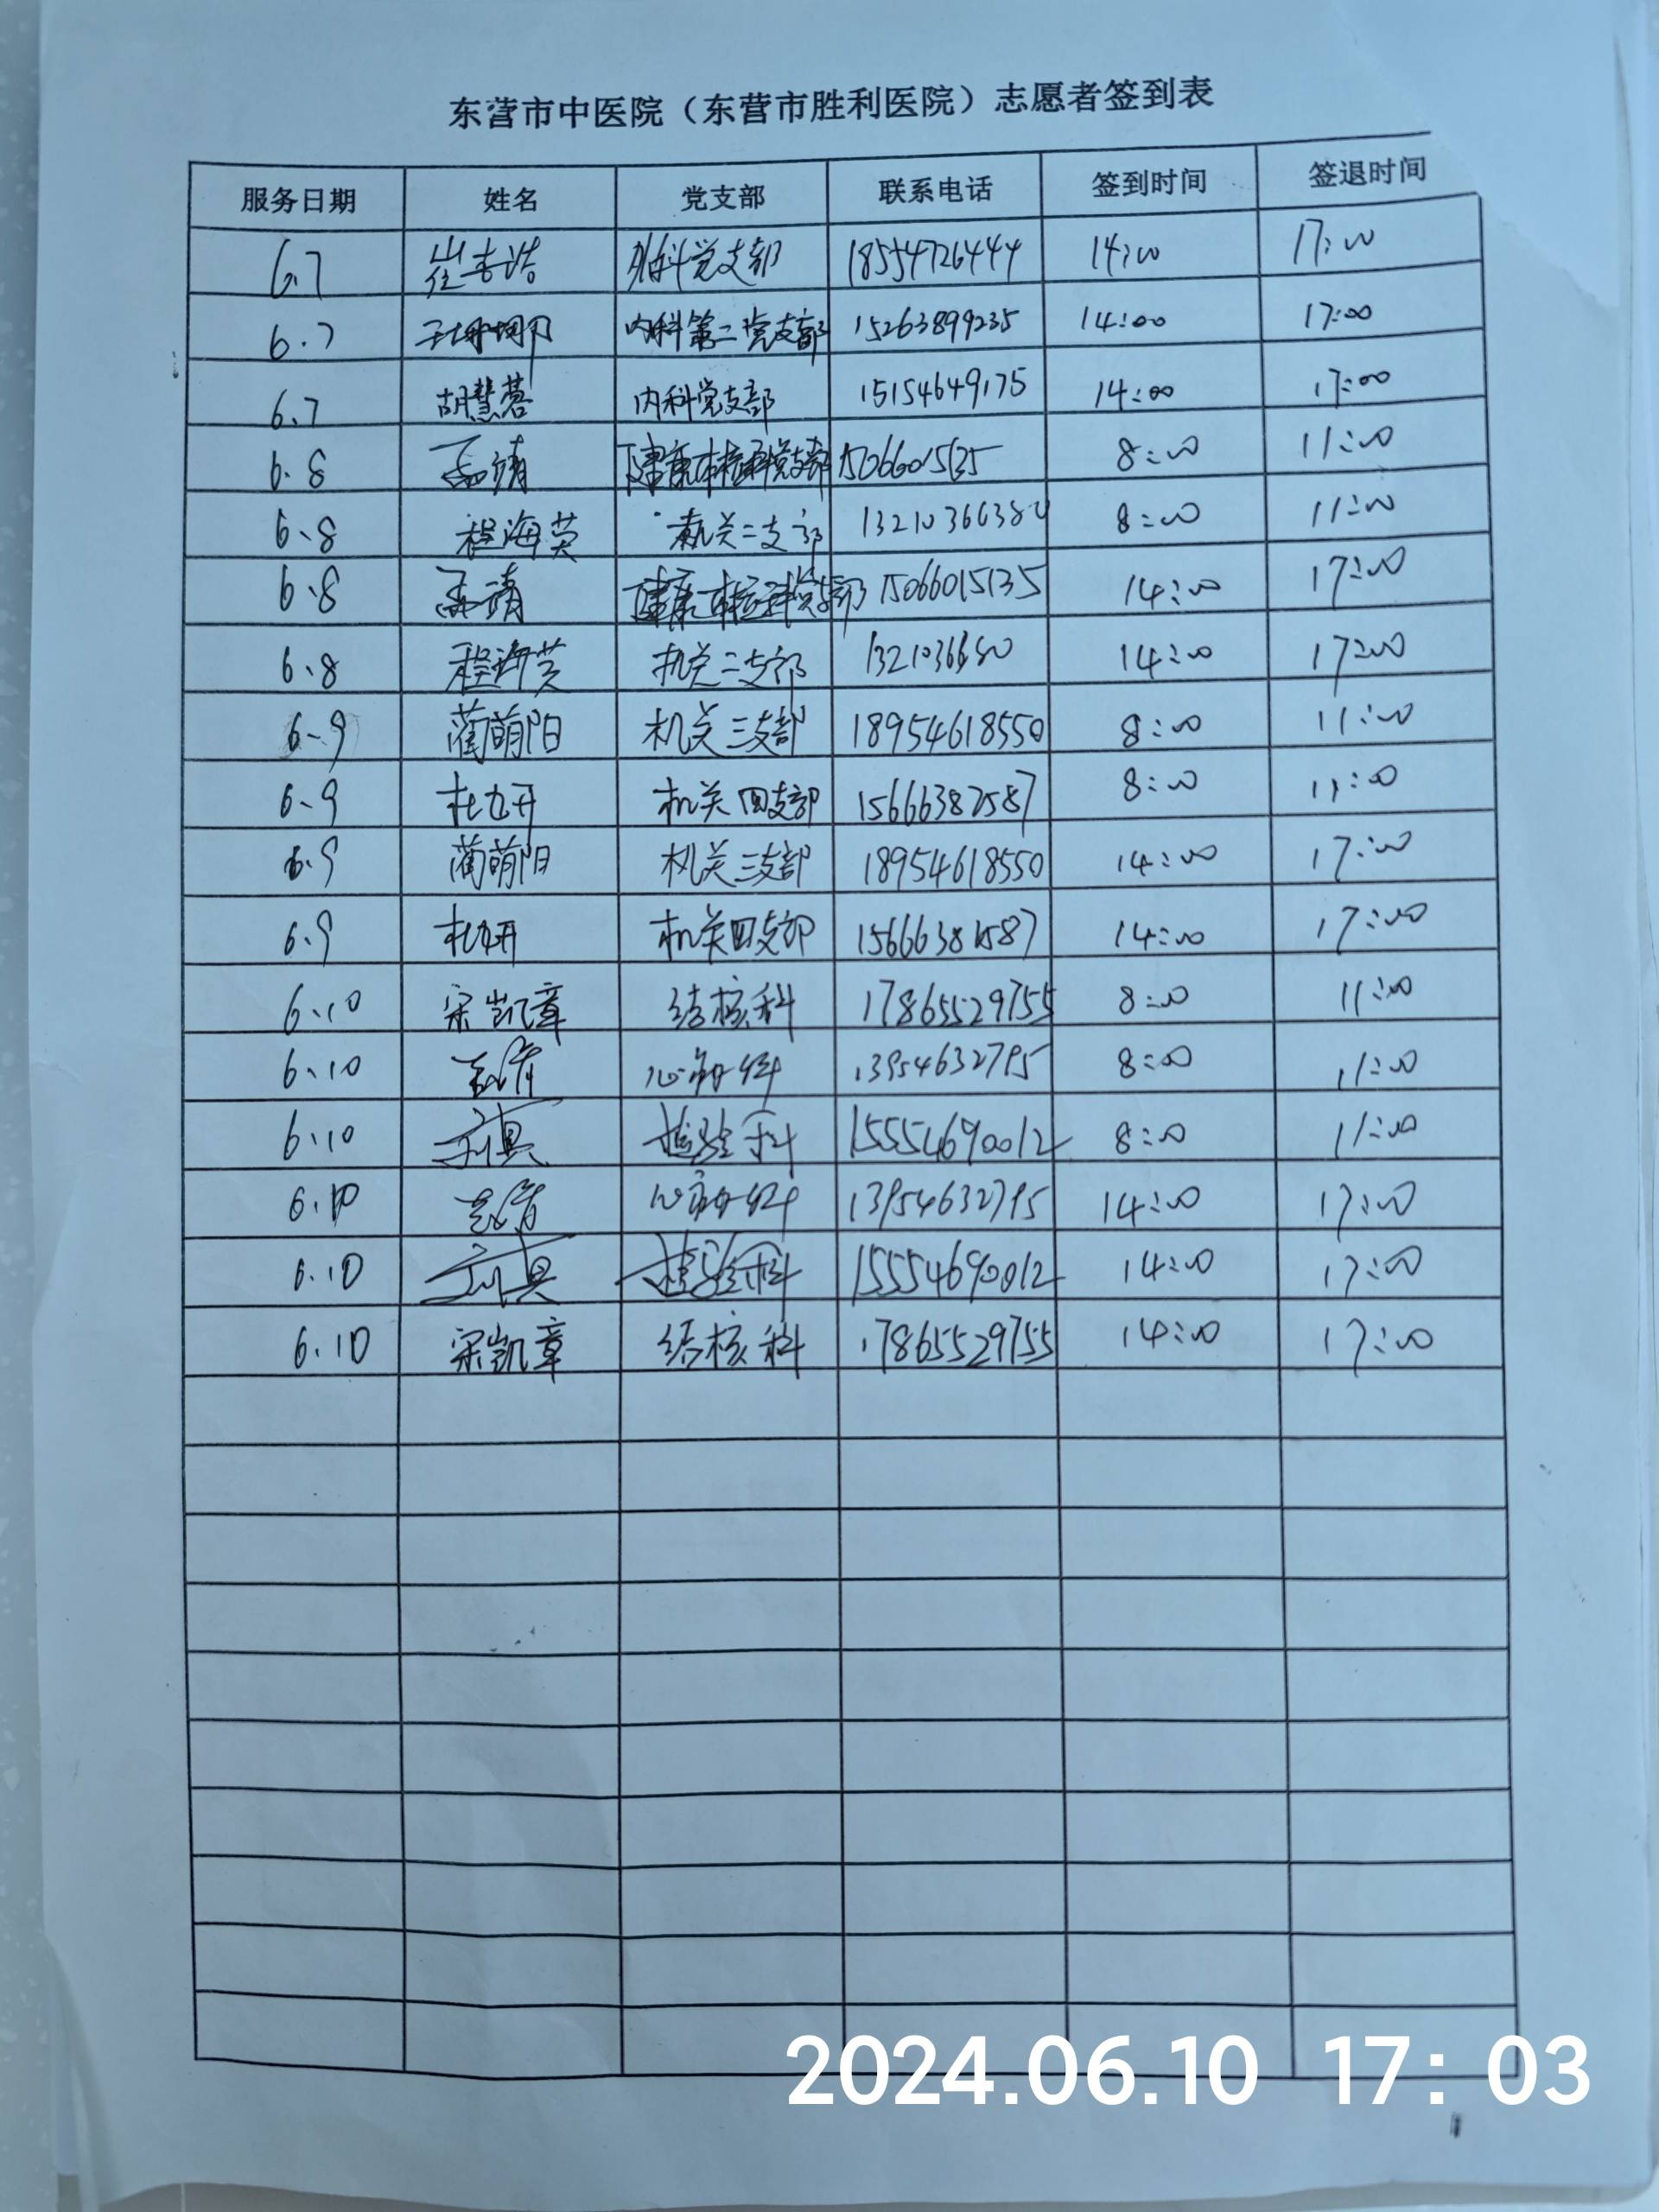 东营市中医院（东营市胜利医院）志愿者签到表
服务日期 姓名 党支部 联系电话 签到时间 签退时间
6.7 崔吉浩 外科党支部 18554726444 14:00 17:00
6.7 内科第二党支部 15263899235 14:00 17:00
6.7 胡慧蓉 内科党支部 15154649175 14:00 17:00
6.8 孟靖 8:00 11:00
6.8 程海英 机关二支部 13210366380 8:00 11:00
6.8 孟靖 15066015135 14:00 17:00
6.8 程海英 机关二支部 14:00 17:00
6.9 蔺萌阳 机关三支部 18954618550 8:00 11:00
6.9 杜九开 机关四支部 15666382587 8:00 11:00
6.9 蔺萌阳 机关三支部 18954618550 14:00 17:00
6.9 机关四支部 14:00 17:00
6.10 宋凯章 结核科 17865529755 8:00 11:00
6.10 心内科 13954632795 8:00 11:00
6.10 检验科 15554690012 8:00 11:00
6.10 心内科 13954632795 14:00 17:00
6.10 检验科 15554690012 14:00 17:00
6.10 宋凯章 结核科 17865529755 14:00 17:00
2024.06.10 17:03